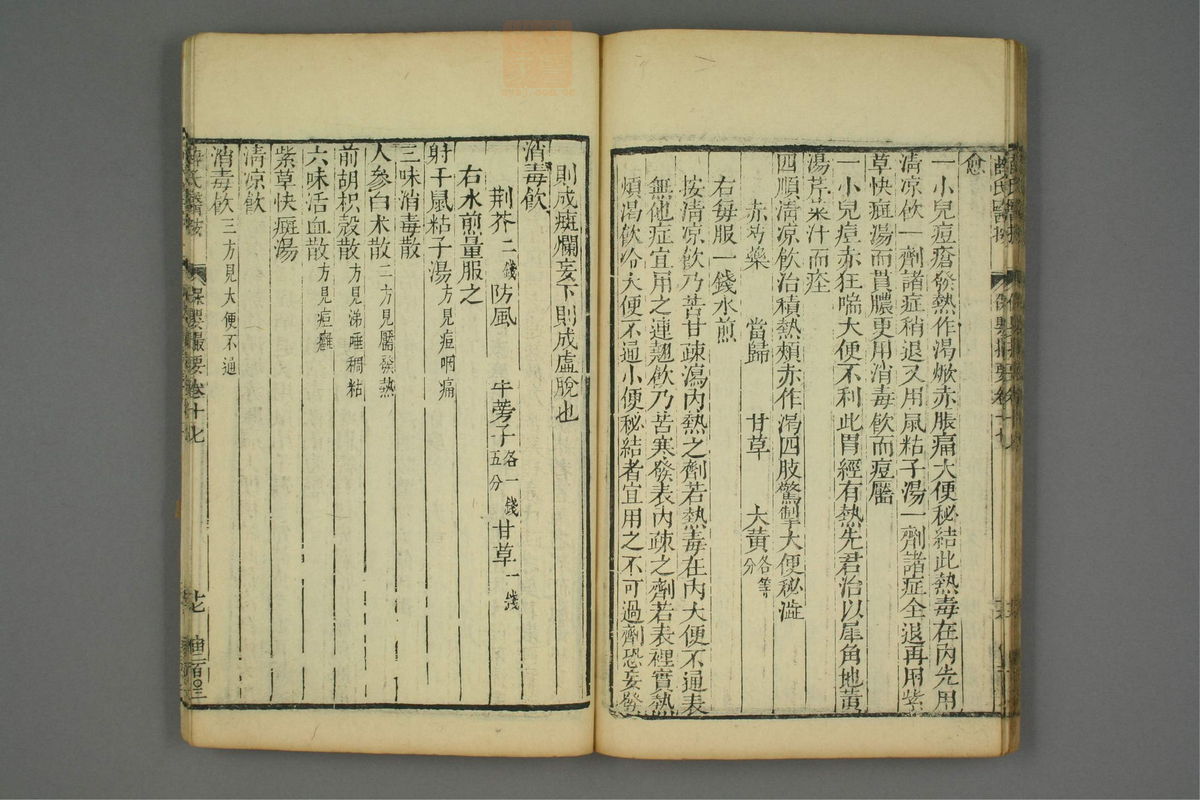 愈
一小兒痘瘡發熱作渴嗽赤脹痛大便秘結此熱毒在內先用
清凉飲一劑諸症稍退又用鼠粘子湯一劑諸症全退再用紫
草快癍湯而貫膿更用消毒飲而痘靨
一小兒痘赤狂喘大便不利此胃經有熱先君治以犀角地黃
湯芹菜汁而痊
四順清凉飲治積熱頰赤作渴四肢驚掣大便秘澁
赤芍藥 當歸 甘草 大黃各等分
右每服一錢水煎
按清凉飲乃苦甘疎瀉內熱之劑若熱毒在內大便不通表
無他症宜用之連翹飲乃苦寒發表內疎之劑若表裡實熱
煩渴飲冷大便不通小便秘結者宜用之不可過劑恐妄發
則成癍爛妄下則成虛脫也
消毒飲
荆芥二錢 防風 牛蒡子各一錢五分 甘草一錢
右水煎量服之
射干鼠粘子湯方見痘咽痛
三味消毒散
人參白术散二方見靨發熱
前胡枳殼散方見涕唾稠粘
六味活血散方見痘癰
紫草快癍湯
清凉飲
消毒飲三方見大便不通
薛氏醫按 保嬰撮要卷十七 十七